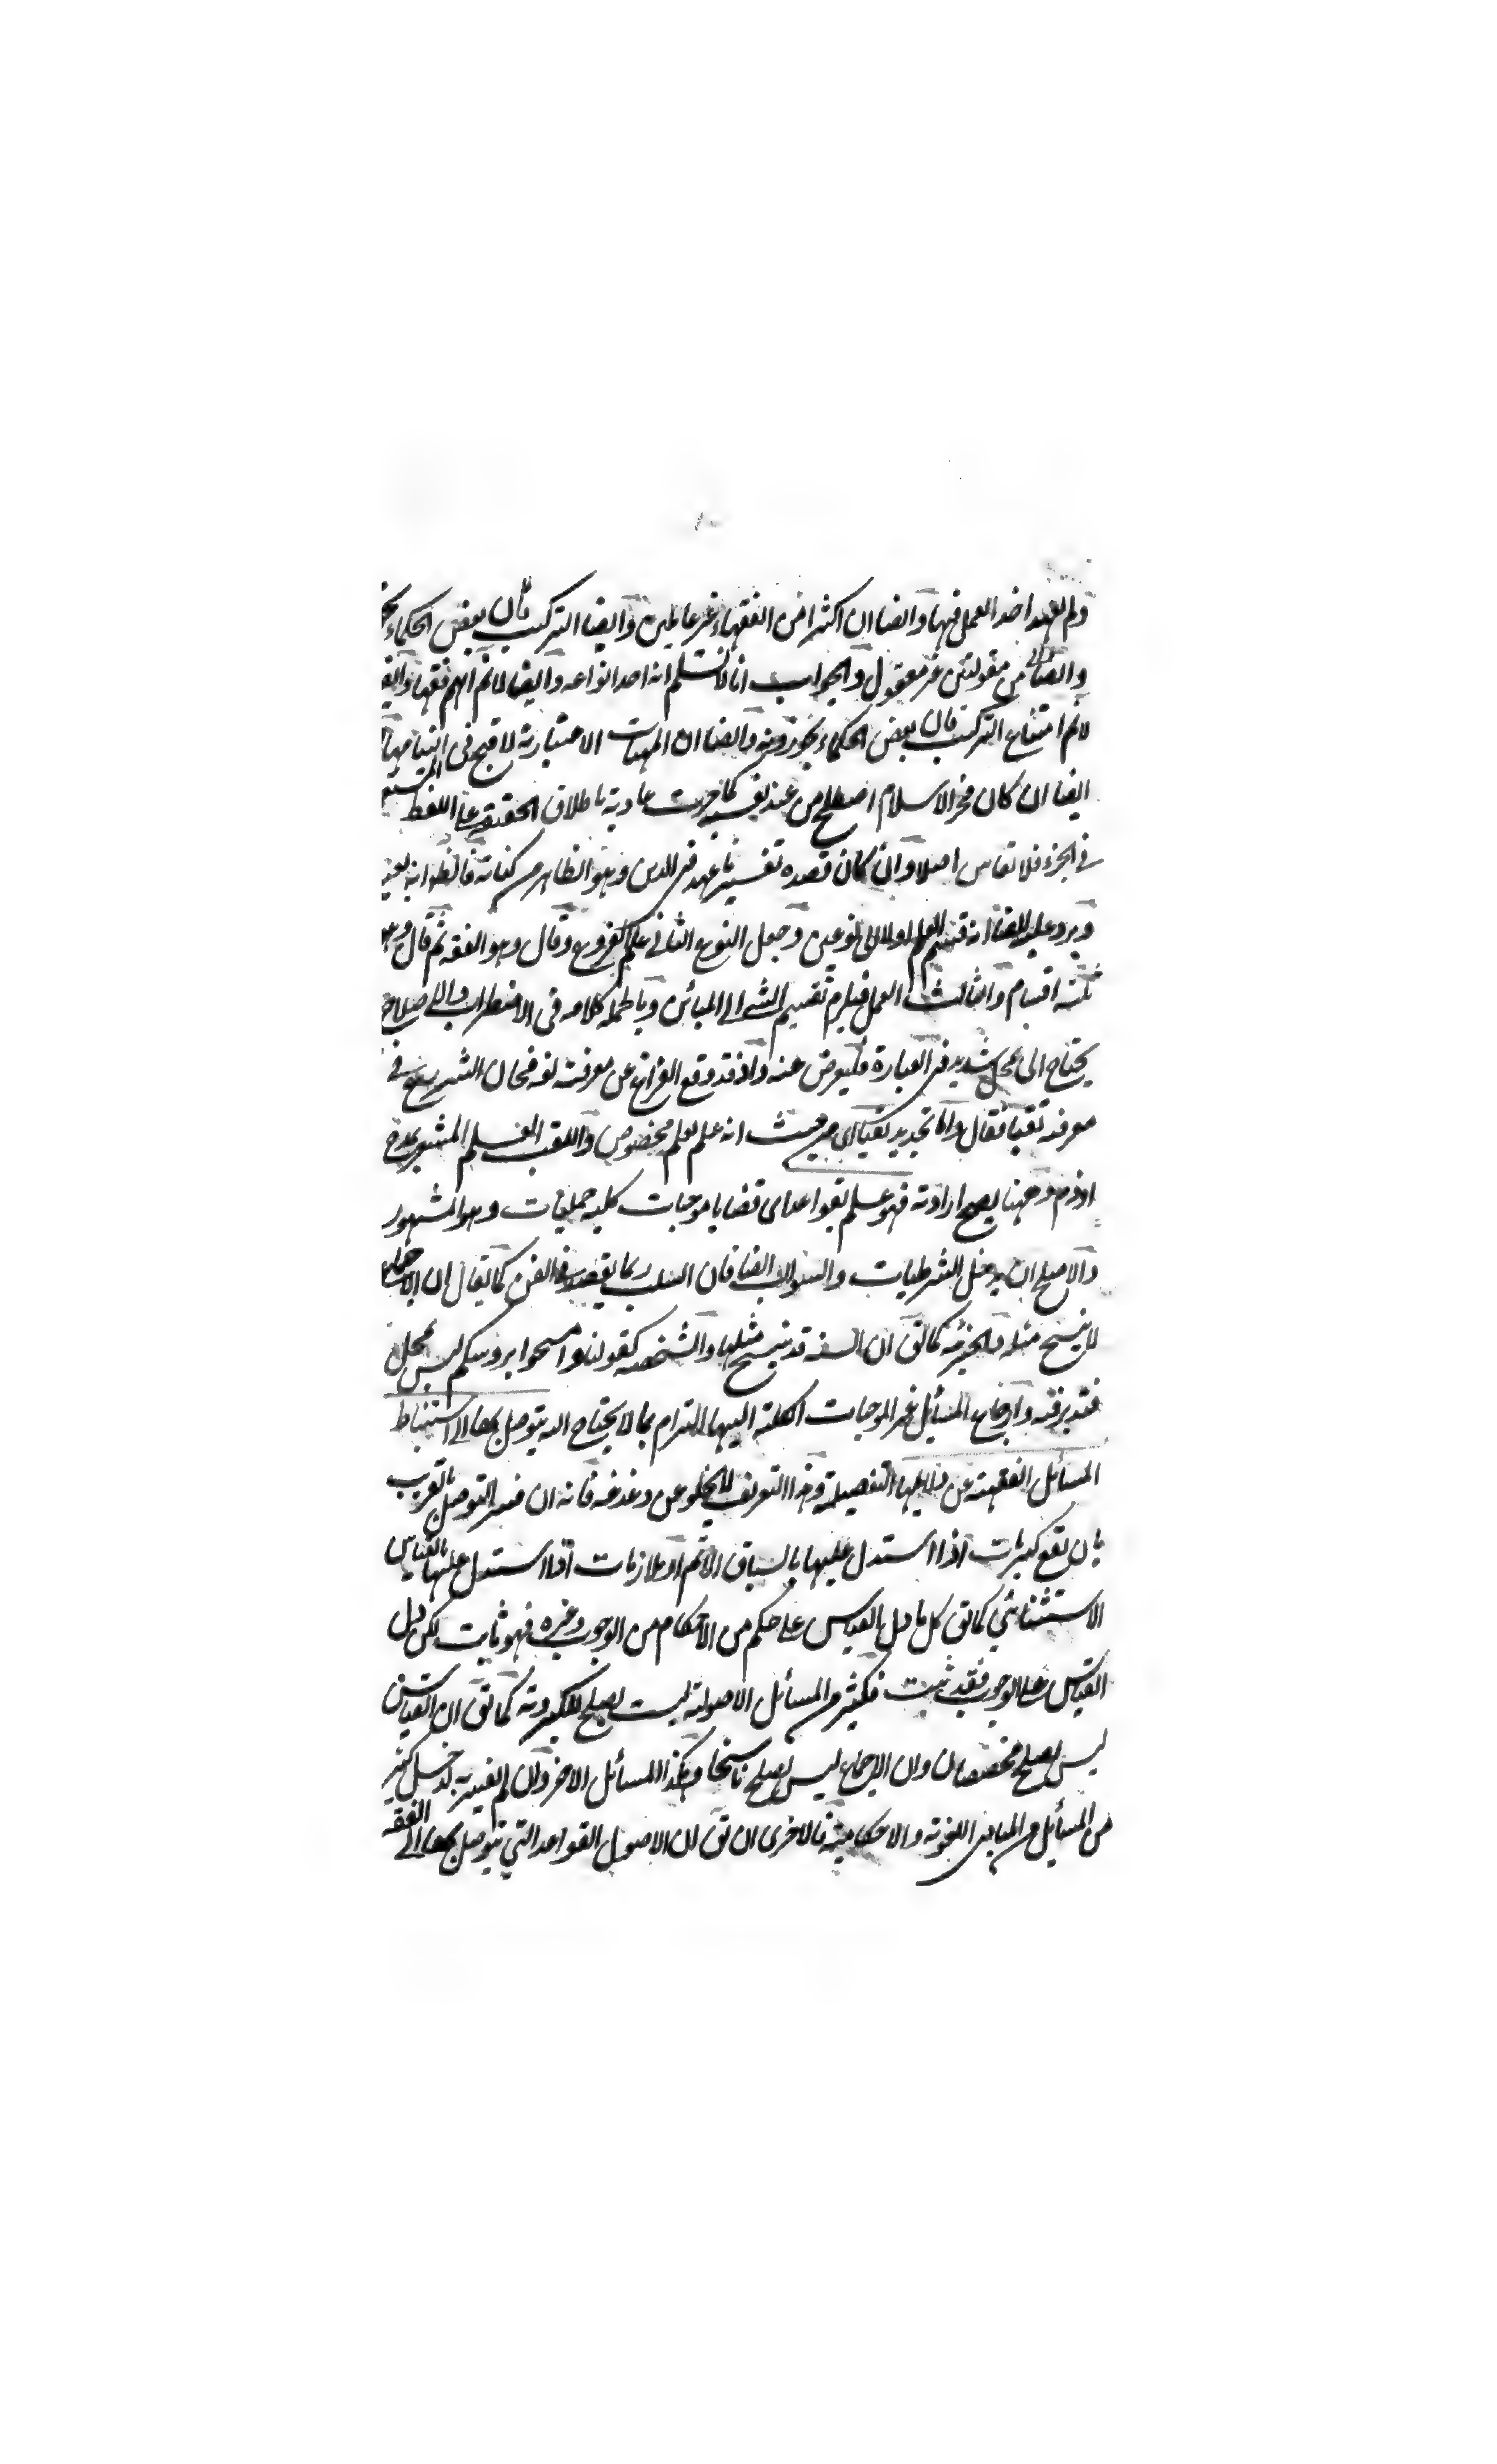 ولم يعهد اخذ العمل فيها وايضا ان اكثرا من الفقهاء غير عاملين وايضا التركيب فان بعض الحكماء
وايضا من مقولتين غير معقول والجواب انا لا نسلم انه احد انواعه وايضا لانم انهم فقهاء وايضا
لانم امتناع التركيب فان بعض الحكماء يجوزونه وايضا ان المهيات الاعتبارية لا قبح في التيامها
ايضا ان كان فخر الاسلام اصطلح من عند نفسه كما جرت عادته باطلاق الحقيقة على اللفظ المستعمل
في الجزء فلا نقاش اصلا وان كان قصده تفسير ما عهد في الدين وهو الظاهر من كتابه فالظاهر انه بعيد
ويرد عليه ايضا انه قسم العلم اولا الى نوعين وجعل النوع الثاني علم الفروع وقال وهو الفقه ثم قال وهو
ثلثة اقسام والثالث العمل فيلزم تقسيم الشئ الى المبائن وبالجملة كلامه في الاضطراب والى اصلاح
يحتاج الى تمحل شديد في العبارة فليعرض عنه واذ قد وقع الفراغ عن معرفته لغة فحان الشروع في
معرفته لقبا فقال واما تحديده لقبا اى من حيث انه علم لعلم مخصوص واللقب العلم المشعر بمدح
او ذم وههنا يصح ارادته فهو علم بقواعد اى قضايا موجبات كلية حمليات وهو المشهور
والاصلح ان يدخل الشرطيات والسوالب ايضا فان السلب ربما يقصد في الفن كما يقال ان الاجماع
لا ينسخ مثله والجزئية كما يق ان السنة قد ينسخ مثلها والشخصية كقولنا وامسحوا برؤسكم ليس بمجمل
فتدبر فيه وارجاع المسائل غير الموجبات الكلية اليها التزام بما لا يحتاج اليه يتوصل بها الى استنباط
المسائل الفقهية عن دلايلها التفصيلية وهذا التعريف لا يخلو عن دغدغة فانه ان فسر التوصل بالقريب
بان يقع كبريات اذا استدل عليها بالسياق الاتم او ملازمات اذا استدل عليها بالقياس
الاستثنائي كما يق كل ما دل القياس على حكم من الاحكام من الوجوب وغيره فهو ثابت لكن دل
القياس على الوجوب فقد ثبت فكثير من المسائل الاصولية ليست يصلح للكبروية كما يق ان القياس
ليس يصلح مخصصا وان الاجماع ليس يصلح ناسخا وهكذا المسائل الاخر وان لم يفسر به لدخل كثير
من المسائل من المبادى اللغوية والاحكامية فالاحرى ان يق ان الاصول القواعد التي يتوصل بها الى الفقه